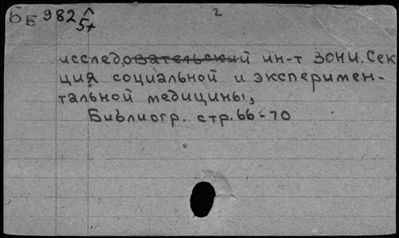 ББ 982 5+ 2
исследовательский ин-т ЗОНИ. Сек
ция социальной и эксперимен-
тальной медицины,
Библиогр. стр. 66-70